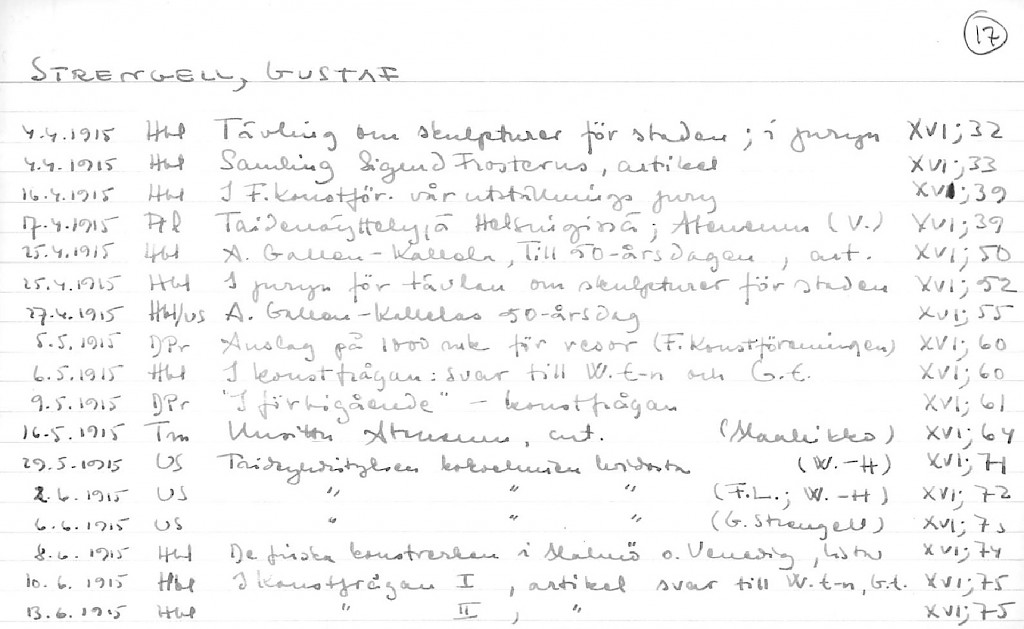 17
STRENGELL, GUSTAF
4.4.1915 Hbl Tävling om skulpturer för staden ; i juryn XVI; 32
4.4.1915 Hbl Samling Sigurd Frosterus, artikel XVI; 33
16.4.1915 Hbl I F.Konstför. vårutställnings jury XVI; 39
17.4.1915 Taidenäyttelyjä Helsingissä ; Ateneum (V.) XVI; 39
25.4.1915 Hbl A. Gallen-Kallela, Till 50-årsdagen, art. XVI; 50
25.4.1915 Hbl I juryn för tävlan om skulpturer för staden XVI; 52
27.4.1915 Hbl/US A. Gallen-Kallelas 50-årsdag XVI; 55
5.5.1915 DPr Anslag på 1000 mk för resor (F.Konstföreningen) XVI; 60
6.5.1915 Hbl I konstfrågan: svar till W.t-n och G.t. XVI; 60
9.5.1915 DPr "I förbigående" - konstfrågan XVI; 61
16.5.1915 Tm Ateneum, art. XVI; 64
29.5.1915 US Taideyhdistyksen kokoelmien (W.-H) XVI; 71
2.6.1915 US " " " (F.L.; W.-H) XVI; 72
6.6.1915 US " " " (G. Strengell) XVI; 73
8.6.1915 Hbl De finska konstverken i Malmö o. Venedig, XVI; 74
10.6.1915 Hbl I konstfrågan I , artikel svar till W.t-n, G.t. XVI; 75
13.6.1915 Hbl " II , " XVI; 75